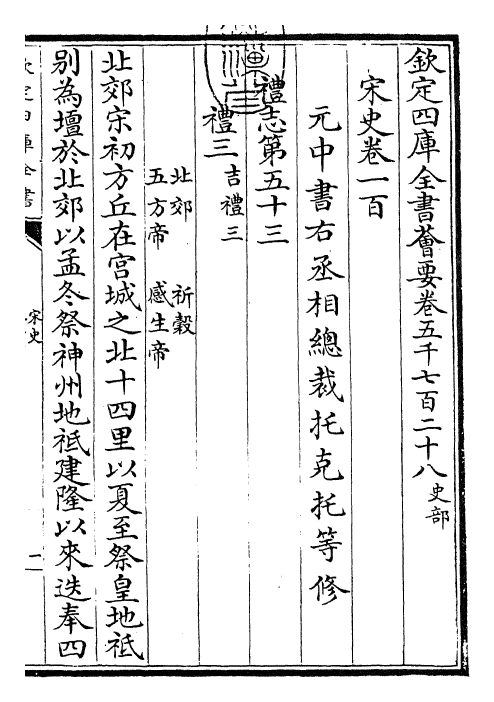 欽定四庫全書薈要卷五千七百二十八史部
宋史卷一百
元中書右丞相總裁托克托等修
禮志第五十三
禮三吉禮三
北郊 祈穀
五方帝 感生帝
北郊宋初方丘在宮城之北十四里以夏至祭皇地祇
别為壇於北郊以孟冬祭神州地祇建隆以來迭奉四
宋史